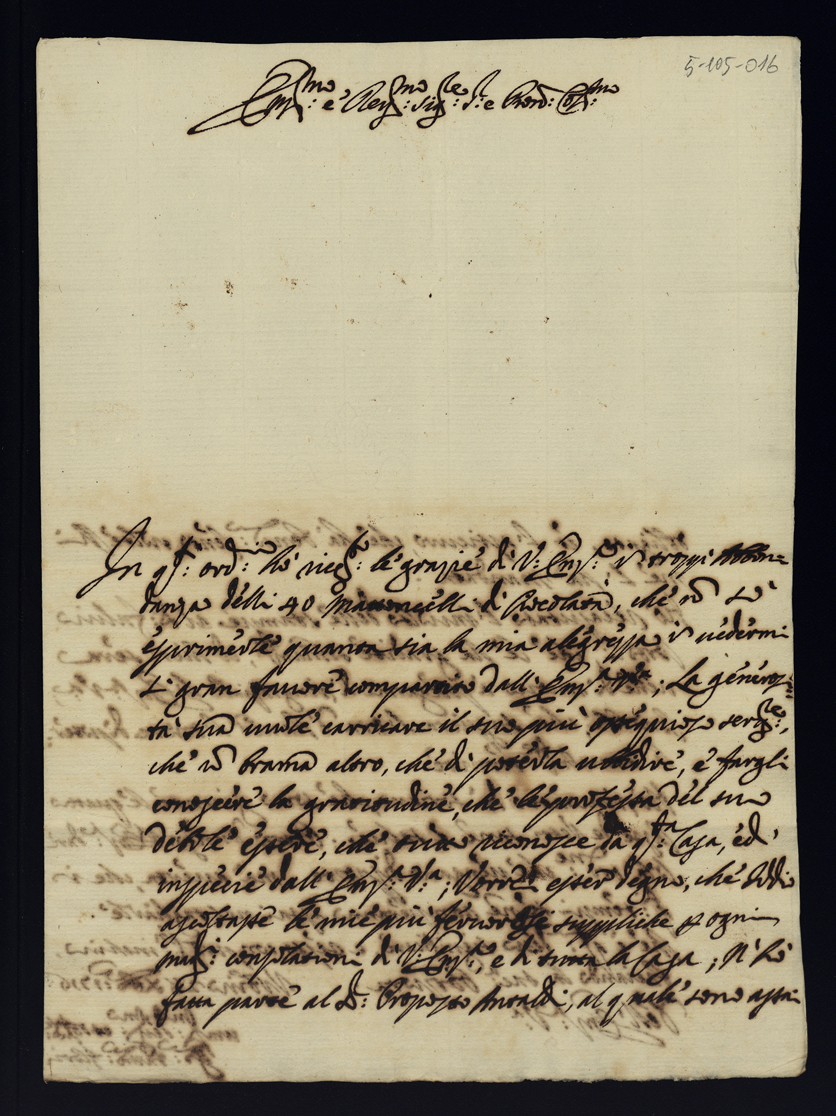 5-105-016
Em:mo e Rev:mo Sig:re S:r e Pron: Col:mo
In q:sto ord:rio hò ricev:to le grazie di V: Em:a in troppa abbon=
danza delli 40 Mattoncelli di Ciccolata, che nō sò
esprimerle quanta sia la mia alegrezza in vedermi
sì gran favore compartito dall' Em:a V:ra; La generosi=
tà sua vuole carricare il suo più ossequioso serv:re,
che nō brama altro, che di poterla ubidire, e fargli
conoscere la gratitudine, che le professa del suo
debole essere, che tutto riconosce da q:sta Casa, ed'
inspecie dall' Em:a V:ra; Vorrei esser degno, che Iddio
ascoltasse le mie più fervorose suppliche p ogni
magg: consolazione di V: Em:a, e di tutta la Casa; N'hò
fatta parte al S: Proposto Ansaldi, al quale sono assai